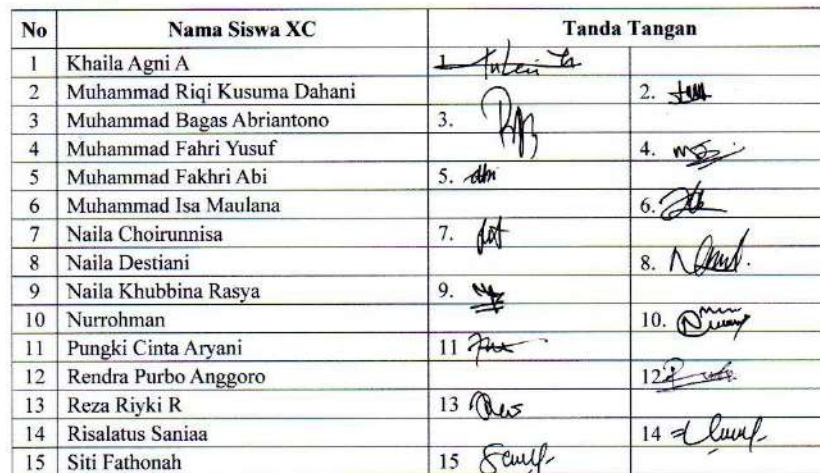 No Nama Siswa XC Tanda Tangan
1 Khaila Agni A 1.
2 Muhammad Riqi Kusuma Dahani 2.
3 Muhammad Bagas Abriantono 3.
4 Muhammad Fahri Yusuf 4.
5 Muhammad Fakhri Abi 5. Abi
6 Muhammad Isa Maulana 6.
7 Naila Choirunnisa 7.
8 Naila Destiani 8.
9 Naila Khubbina Rasya 9.
10 Nurrohman 10.
11 Pungki Cinta Aryani 11
12 Rendra Purbo Anggoro 12
13 Reza Riyki R 13
14 Risalatus Saniaa 14
15 Siti Fathonah 15